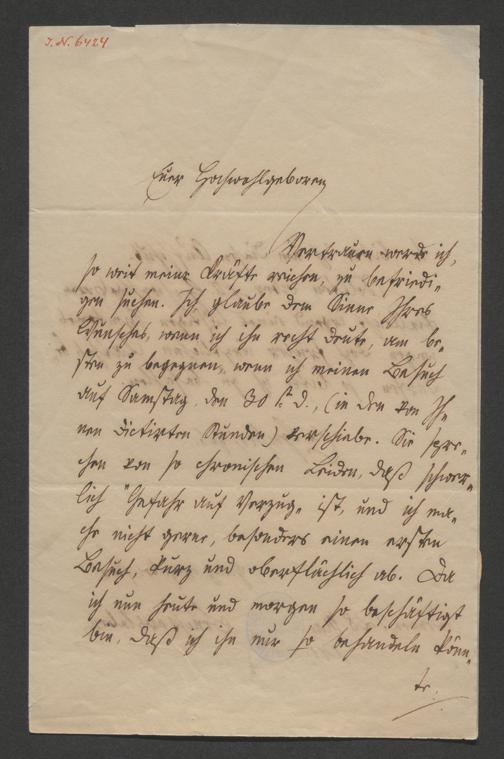 I. N. 6424
Euer Hochwohlgeboren
Vertrauen werde ich,
so weit meine Kräfte reichen, zu befriedi-
gen suchen. Ich glaube dem Sinne Ihres
Wunsches, wenn ich ihn recht deute, am be-
sten zu begegnen, wenn ich meinen Besuch
auf Samstag, den 30 st. d., (in den von Ih-
nen dictirten Stunden) verschiebe. Sie spre-
chen von so chronischen Leiden, daß schwer-
lich "Gefahr auf Verzug" ist, und ich ma-
che nicht gerne, besonders einen ersten
Besuch, kurz und oberflächlich ab. Da
ich nun heute und morgen so beschäftigt
bin, daß ich ihn nur so behandeln könn-
te.